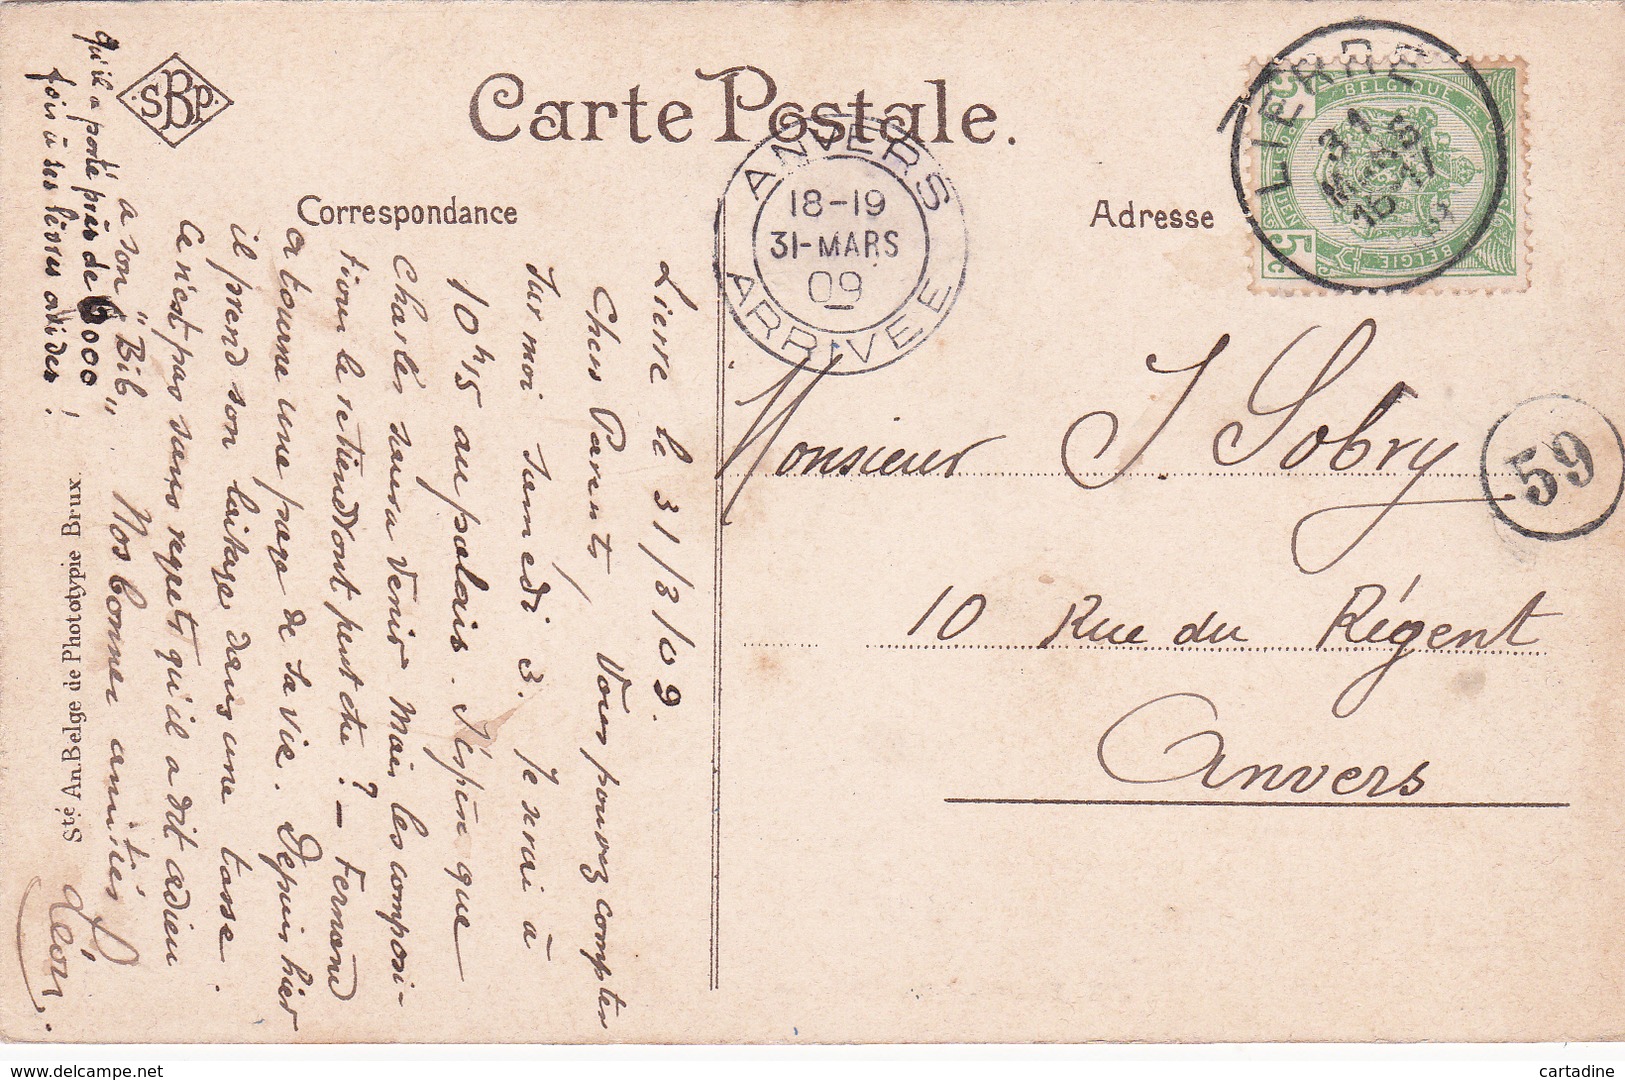 Carte Postale.
Correspondance
Adresse
SBP
ANVERS
18-19
31-MARS
09
ARRIVEE
LIERRE
31
MARS
16-17
BELGIQUE
5c
BELGIE
59
Monsieur J Sobry
10 Rue du Régent
Anvers
Lierre le 31/3/09.
Chers Parents, Vous pouvez compter
sur moi samedi 3. Je serai à
10h15 au palais. J'espère que
Charles saura venir Mais les composi-
tions le retiendront peut être ? – Fernand
a tourné une page de sa vie. Depuis hier
il prend son laitage dans une tasse.
Ce n'est pas sans regrets qu'il a dit adieu
a son "Bib" Nos bonnes amitiés
Léon.
qu'il a porté près de 6000
fois à ses lèvres avides !
Sté An. Belge de Phototypie Brux.
cartadine